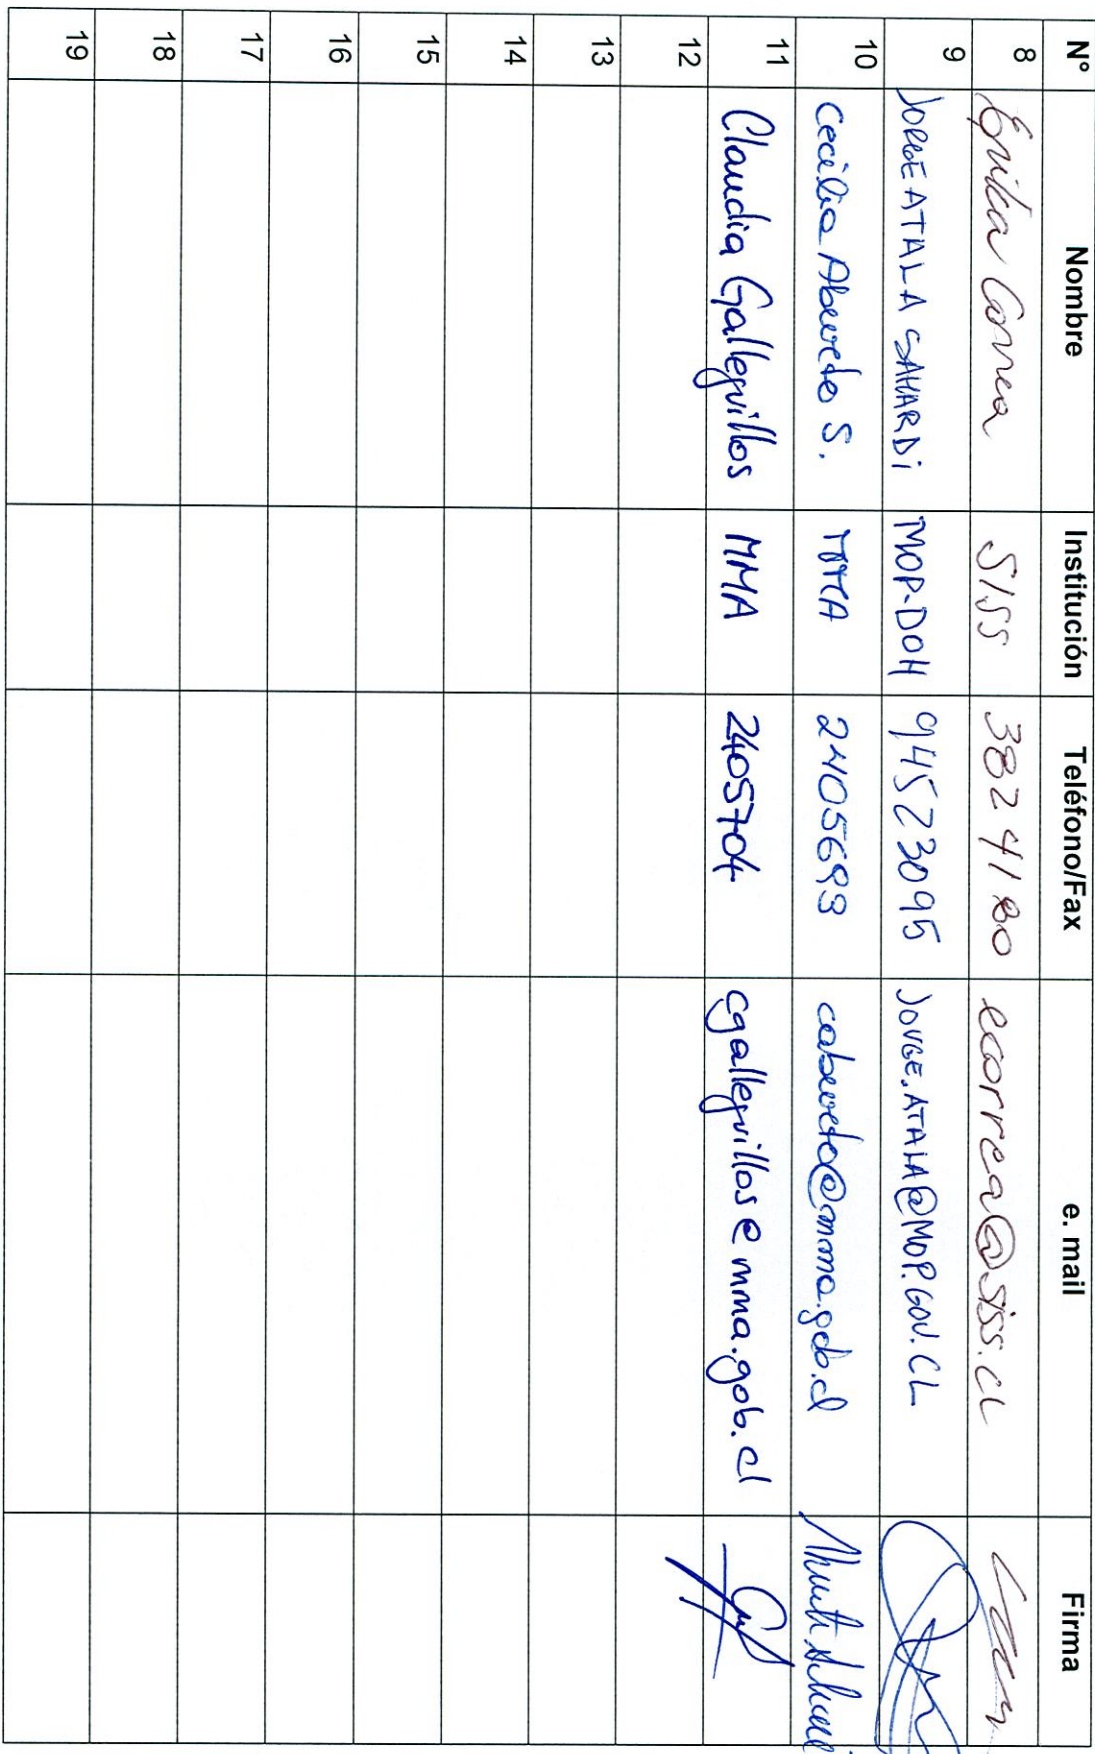 N° Nombre Institución Teléfono/Fax e. mail Firma
8 Erika Correa SISS 382 4180 ecorrea@siss.cl
9 JORGE ATALA SAHARDi MOP-DOH 94523095 JORGE.ATALA@MOP.GOV.CL
10 Cecilia Aburto S. 2405693 caburto@mma.gob.cl
11 Claudia Galleguillos MMA 2405704 cgalleguillos@mma.gob.cl
12
13
14
15
16
17
18
19